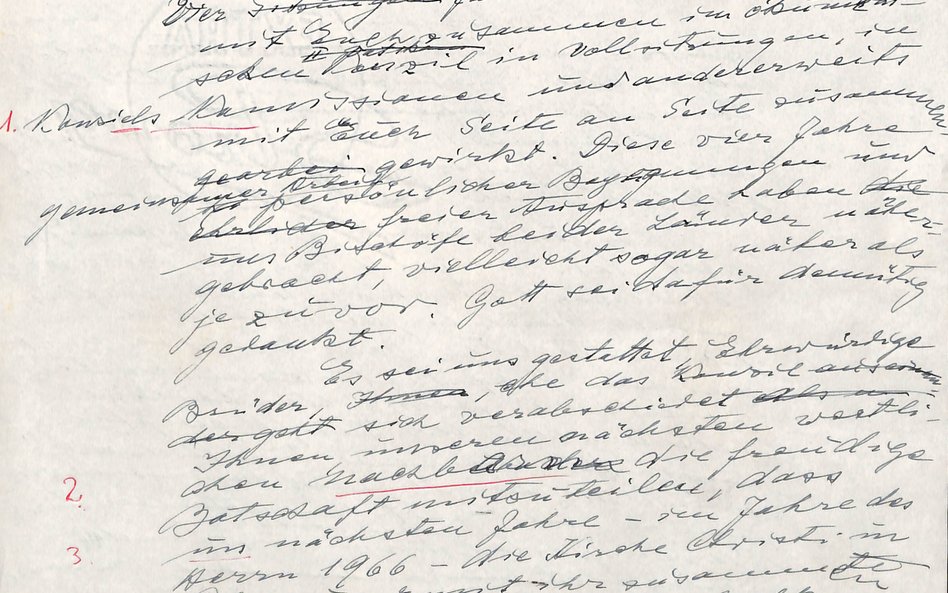 Vier Sitzungen
mit Euch zusammen im ökumeni-
II Vatikan
schen Konzil in Vollsitzungen, in
1. Konzils Kommissionen und andererweits
mit Euch Seite an Seite zusammen
gearbei gewirkt. Diese vier Jahre
gemeinsamer Arbeit
persönlicher Begegnungen und
ehrlicher freier Aussprache haben die
uns Bischöfe beider Länder näher
gebracht, vielleicht sogar näher als
je zuvor. Gott sei dafür demütig
gedankt.
Es sei uns gestattet, Ehrwürdige
Brüder, Ihnen, ehe das Konzil ausein
dergeht sich verabschiedet
Ihnen unseren nächsten westli-
chen Nachbarn die freudige
2. Botschaft mitzuteilen, dass
im nächsten Jahre – im Jahre des
3. Herrn 1966 – die Kirche Christi in
mit ihr zusammen